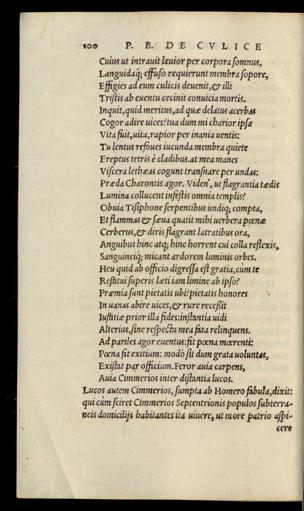 100 P. B. DE CVLICE
Cuius ut intrauit leuior per corpora somnus,
Languidaq́; effuso requierunt membra sopore,
Effigies ad eum culicis deuenit, & illi
Tristis ab euentu cecinit conuicia mortis.
Inquit, quid meritus, ad quæ delatus acerbas
Cogor adire uices? tua dum mi charior ipsa
Vita fuit, uita, rapior per inania uentis:
Tu lentus refoues iucunda membra quiete
Ereptus tetris è cladibus. at mea manes
Viscera lethæas cogunt transnare per undas:
Præda Charontis agor. Viden', ut flagrantia tædis
Lumina collucent infestis omnia templis?
Obuia Tisiphone serpentibus undiq; compta,
Et flammas & sæua quatit mihi uerbera pœnæ
Cerberus, & diris flagrant latratibus ora,
Anguibus hinc atq; hinc horrent cui colla reflexis,
Sanguineiq́; micant ardorem luminis orbes.
Heu quid ab officio digressa est gratia, cum te
Restitui superis læti iam limine ab ipso?
Præmia sunt pietatis ubi? pietatis honores
In uanas abiere uices, & rure recessit
Iustitiæ prior illa fides: instantia uidi
Alterius, sine respectu mea fata relinquens.
Ad pariles agor euentus: fit pœna mœrenti:
Pœna sit exitium: modò sit dum grata uoluntas,
Existat par officium. Feror auia carpens,
Auia Cimmerios inter distantia lucos.
Lucos autem Cimmerios, sumpta ab Homero fabula, dixit:
qui cùm sciret Cimmerios Septentrionis populos subterra-
neis domicilijs habitantes ita uiuere, ut more patrio aspi-
cere